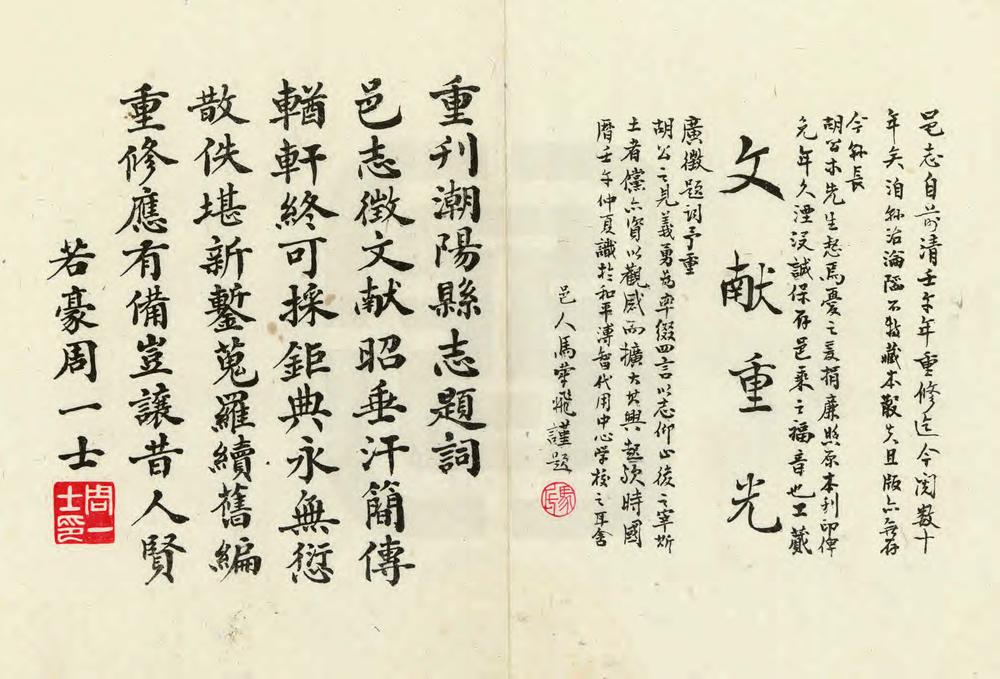 邑志自前清壬午年重修迄今閱数十
年矣洎縣治淪陷不特藏本散失且版亦無存
今縣長
胡公木先生惄焉憂之爰捐廉照原本刊印俾
免年久湮没誠保存邑乘之福音也工蕆
文献重光
廣徵題詞予重
胡公之見義勇為率綴四言以志仰止後之宰斯
土者儻亦資以觀感而擴大其興趣歟時國
曆壬午仲夏識於和平溥智代用中心学校之耳舍
邑人馬飛謹題
重刋潮陽縣志題詞
邑志徵文献昭垂汗簡傳
輶軒終可採鉅典永無愆
散佚堪新鏨蒐羅續舊編
重修應有備豈讓昔人賢
若豪周一士
周一士印